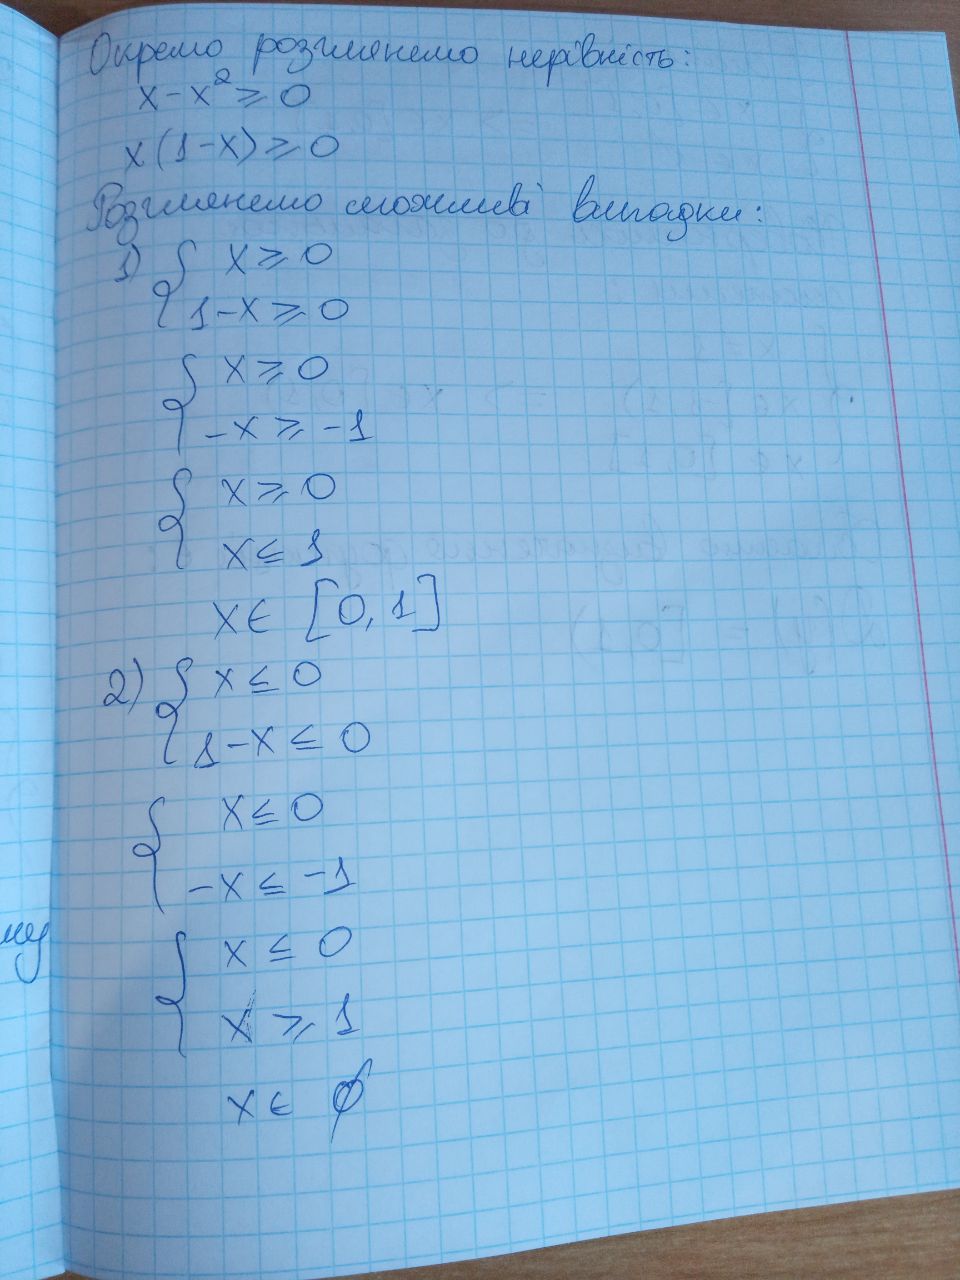 Окремо розглянемо нерівність:
x - x² ⩾ 0
x(1-x) ⩾ 0
Розглянемо можливі випадки:
1) { x ⩾ 0
1-x ⩾ 0
{ x ⩾ 0
-x ⩾ -1
{ x ⩾ 0
x ≤ 1
x ∈ [0, 1]
2) { x ≤ 0
1-x ≤ 0
{ x ≤ 0
-x ≤ -1
{ x ≤ 0
x ⩾ 1
x ∈ ∅